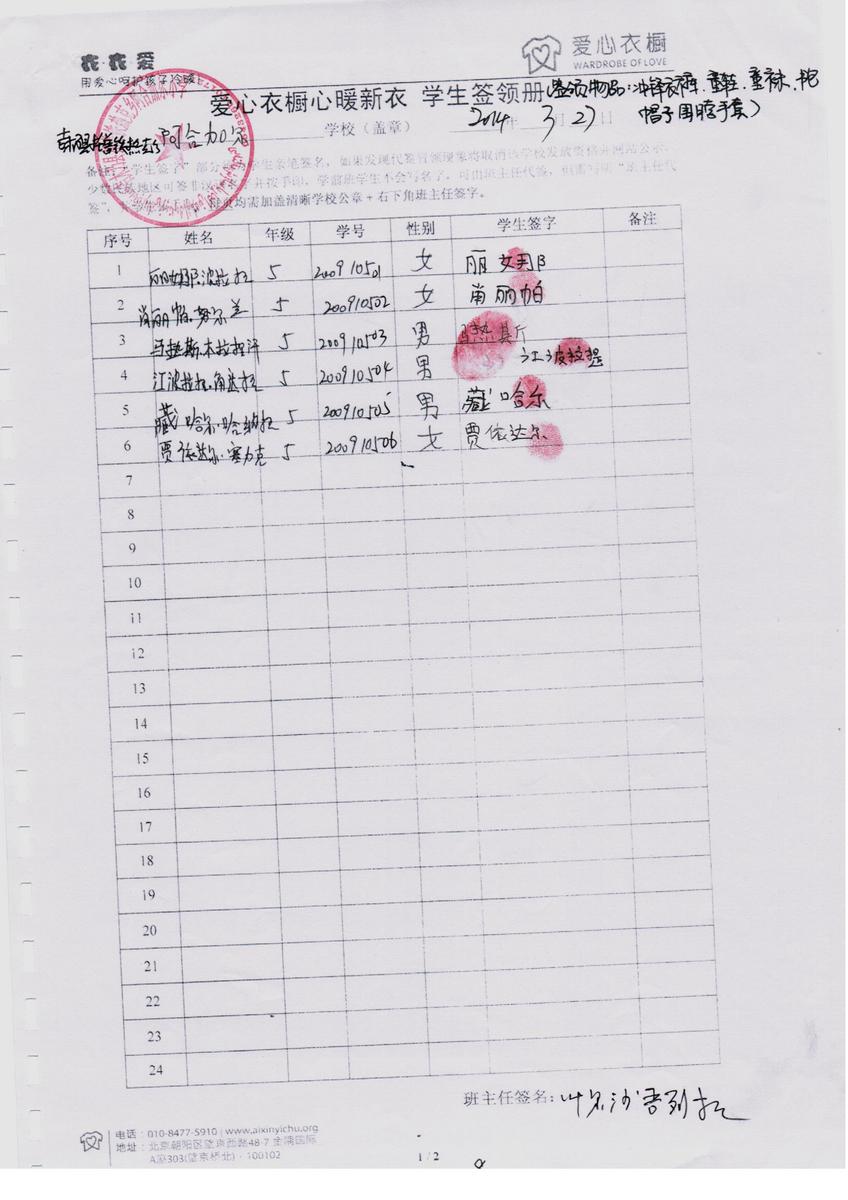 衣·衣爱
用爱心呵护孩子冷暖
爱心衣橱
WARDROBE OF LOVE
爱心衣橱心暖新衣 学生签领册(签领物品:冲锋衣裤、童鞋、童袜、书包
帽子围脖手套)
阿合加
学校（盖章） 2014年 3月 27日
备注:"学生签字"部分须学生亲笔签名，如果发现代签冒领现象将取消该学校发放资格并网站公示。
少数民族地区可签非汉字名字并按手印，学前班学生不会写名字，可由班主任代签，但需写明"班主任代
签"，均需加盖清晰学校公章+右下角班主任签字。
序号 姓名 年级 学号 性别 学生签字 备注
1 丽娜·波拉提 5 200910501 女 丽娜
2 肖丽帕·努尔兰 5 200910502 女 肖丽帕
3 马热斯·木拉提汗 5 200910503 男
4 江波拉提·角达提 5 200910504 男 江波拉提
5 藏哈尔·哈纳提 5 200910505 男 藏哈尔
6 贾依达尔·塞力克 5 200910506 女 贾依达尔
7
8
9
10
11
12
13
14
15
16
17
18
19
20
21
22
23
24
班主任签名:
电话：010-8477-5910 | www.aixinyichu.org
地址：北京朝阳区望京西路48-7 金隅国际
A座303(望京桥北)·100102
1 / 2